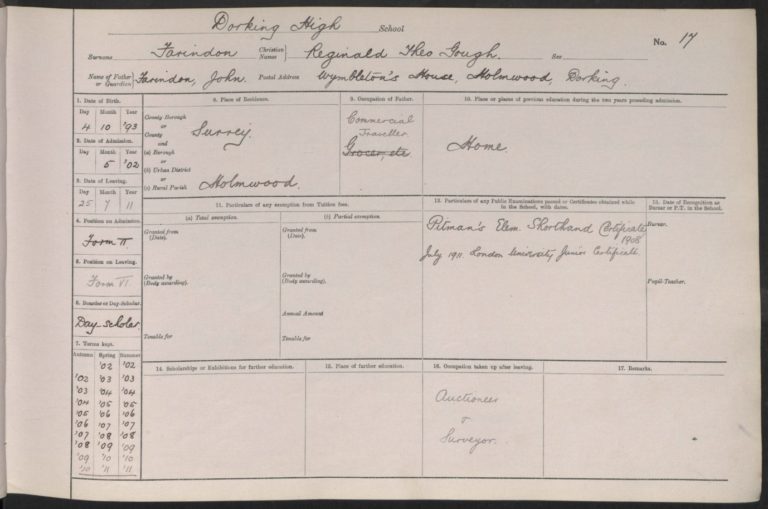 Dorking High School
No. 17
Surname Farindon Christian Names Reginald Theo Gough. Sex
Name of Father or Guardian Farindon, John. Postal Address Wymbleton's House, Holmwood, Dorking.
1. Date of Birth.
Day Month Year
4 10 '93
2. Date of Admission.
Day Month Year
5 '02
3. Date of Leaving.
Day Month Year
25 7 11
4. Position on Admission.
Form II
5. Position on Leaving.
Form VI
6. Boarder or Day Scholar.
Day Scholar.
7. Terms kept.
Autumn Spring Summer
'02 '02
'02 '03 '03
'03 '04 '04
'04 '05 '05
'05 '06 '06
'06 '07 '07
'07 '08 '08
'08 '09 '09
'09 '10 '10
'10 '11 '11
8. Place of Residence.
County Borough
or
County
and
Surrey.
(a) Borough
or
(b) Urban District
or
(c) Rural Parish Holmwood.
9. Occupation of Father.
Commercial
Traveller.
Grocer, etc
10. Place or places of previous education during the two years preceding admission.
Home.
11. Particulars of any exemption from Tuition fees.
(a) Total exemption.
Granted from
(Date).
Granted by
(Body awarding).
Tenable for
(b) Partial exemption.
Granted from
(Date).
Granted by
(Body awarding).
Annual Amount
Tenable for
12. Particulars of any Public Examinations passed or Certificates obtained while
in the School, with dates.
Pitman's Elem. Shorthand Certificate
1908
July 1911. London University Junior Certificate.
13. Date of Recognition as
Bursar or P.T. in the School.
Bursar.
Pupil-Teacher.
14. Scholarships or Exhibitions for further education.
15. Place of further education.
16. Occupation taken up after leaving.
Auctioneer
&
Surveyor.
17. Remarks.